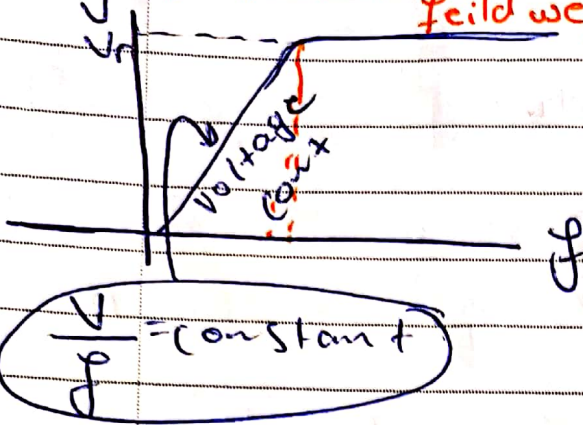 V
Vr
feild we
voltage
cont
f
V/f = constant